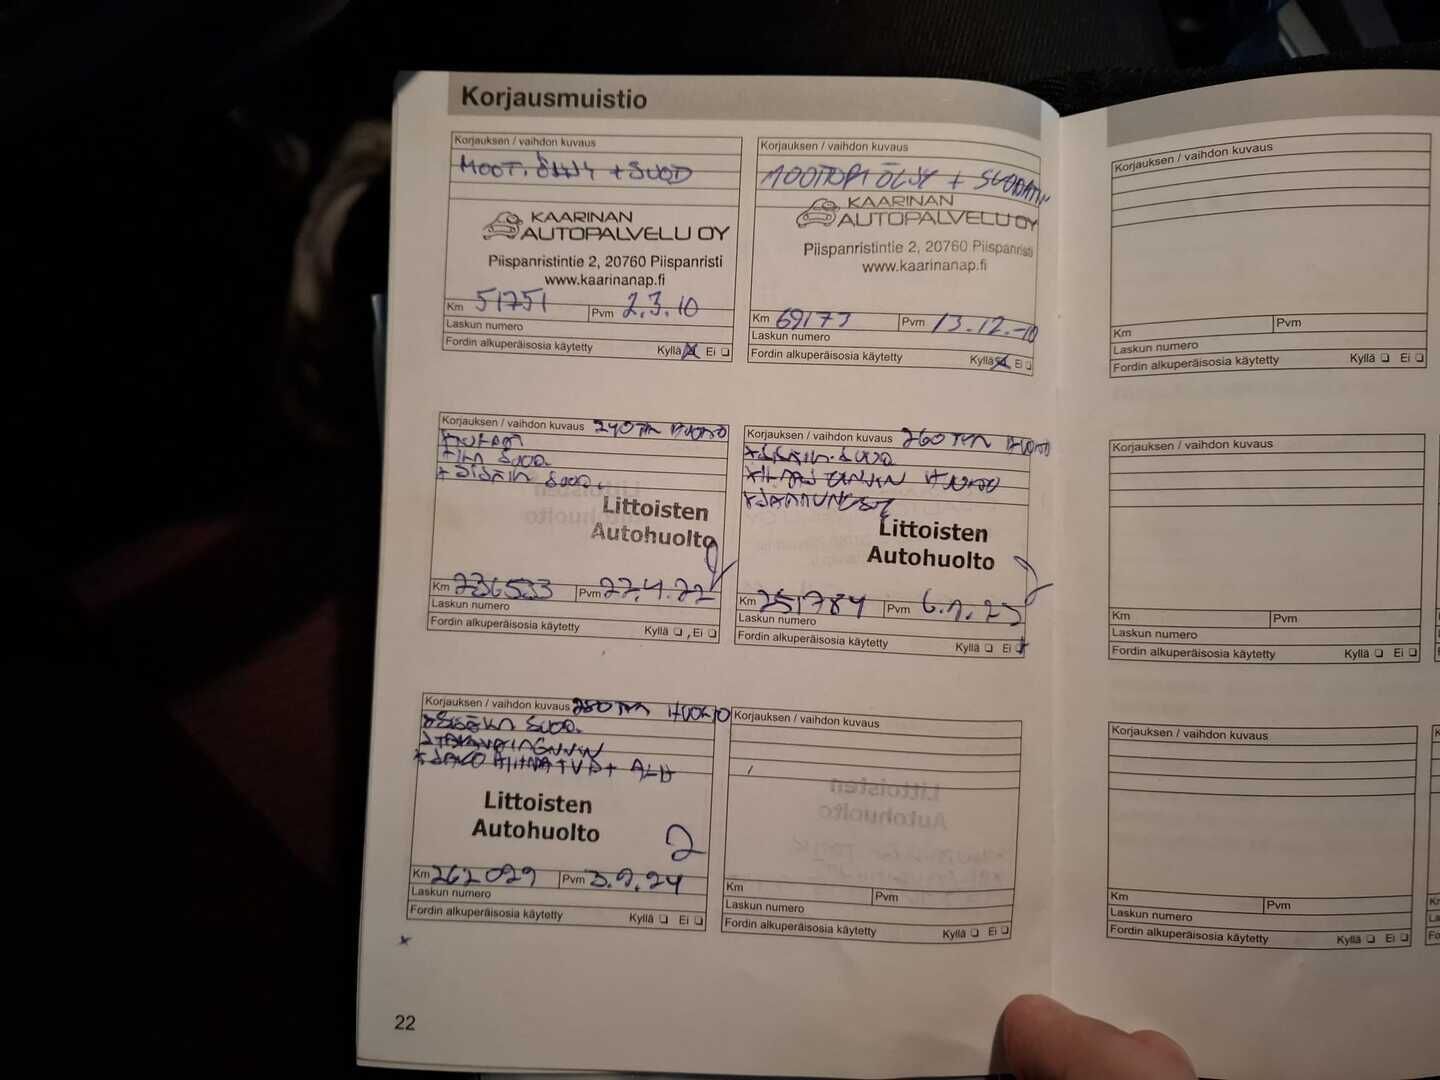 Korjausmuistio
Korjauksen / vaihdon kuvaus
MOOT. ÖLJY + SUOD
KAARINAN
AUTOPALVELU OY
Piispanristintie 2, 20760 Piispanristi
www.kaarinanap.fi
Km 51751 Pvm 2.3.10
Laskun numero
Fordin alkuperäisosia käytetty Kyllä Ei
Korjauksen / vaihdon kuvaus
MOOTTORI ÖLJY + SUODATIN
KAARINAN
AUTOPALVELU OY
Piispanristintie 2, 20760 Piispanristi
www.kaarinanap.fi
Km 69173 Pvm 13.12.-10
Laskun numero
Fordin alkuperäisosia käytetty Kyllä Ei
Korjauksen / vaihdon kuvaus
Km Pvm
Laskun numero
Fordin alkuperäisosia käytetty Kyllä Ei
Korjauksen / vaihdon kuvaus 240 TKM HUOLTO
SUOD.
SUOD.
Littoisten
Autohuolto
Km 236533 Pvm 27.4.22
Laskun numero
Fordin alkuperäisosia käytetty Kyllä Ei
Korjauksen / vaihdon kuvaus 260 TKM HUOLTO
SUOD
HUOLTO
Littoisten
Autohuolto
Km 251784 Pvm
Laskun numero
Fordin alkuperäisosia käytetty Kyllä Ei
Korjauksen / vaihdon kuvaus
Km Pvm
Laskun numero
Fordin alkuperäisosia käytetty Kyllä Ei
Korjauksen / vaihdon kuvaus 280 TKM HUOLTO
SUOD.
Littoisten
Autohuolto
Km 262029 Pvm 3.9.24
Laskun numero
Fordin alkuperäisosia käytetty Kyllä Ei
Korjauksen / vaihdon kuvaus
Km Pvm
Laskun numero
Fordin alkuperäisosia käytetty Kyllä Ei
Korjauksen / vaihdon kuvaus
Km Pvm
Laskun numero
Fordin alkuperäisosia käytetty Kyllä Ei
22